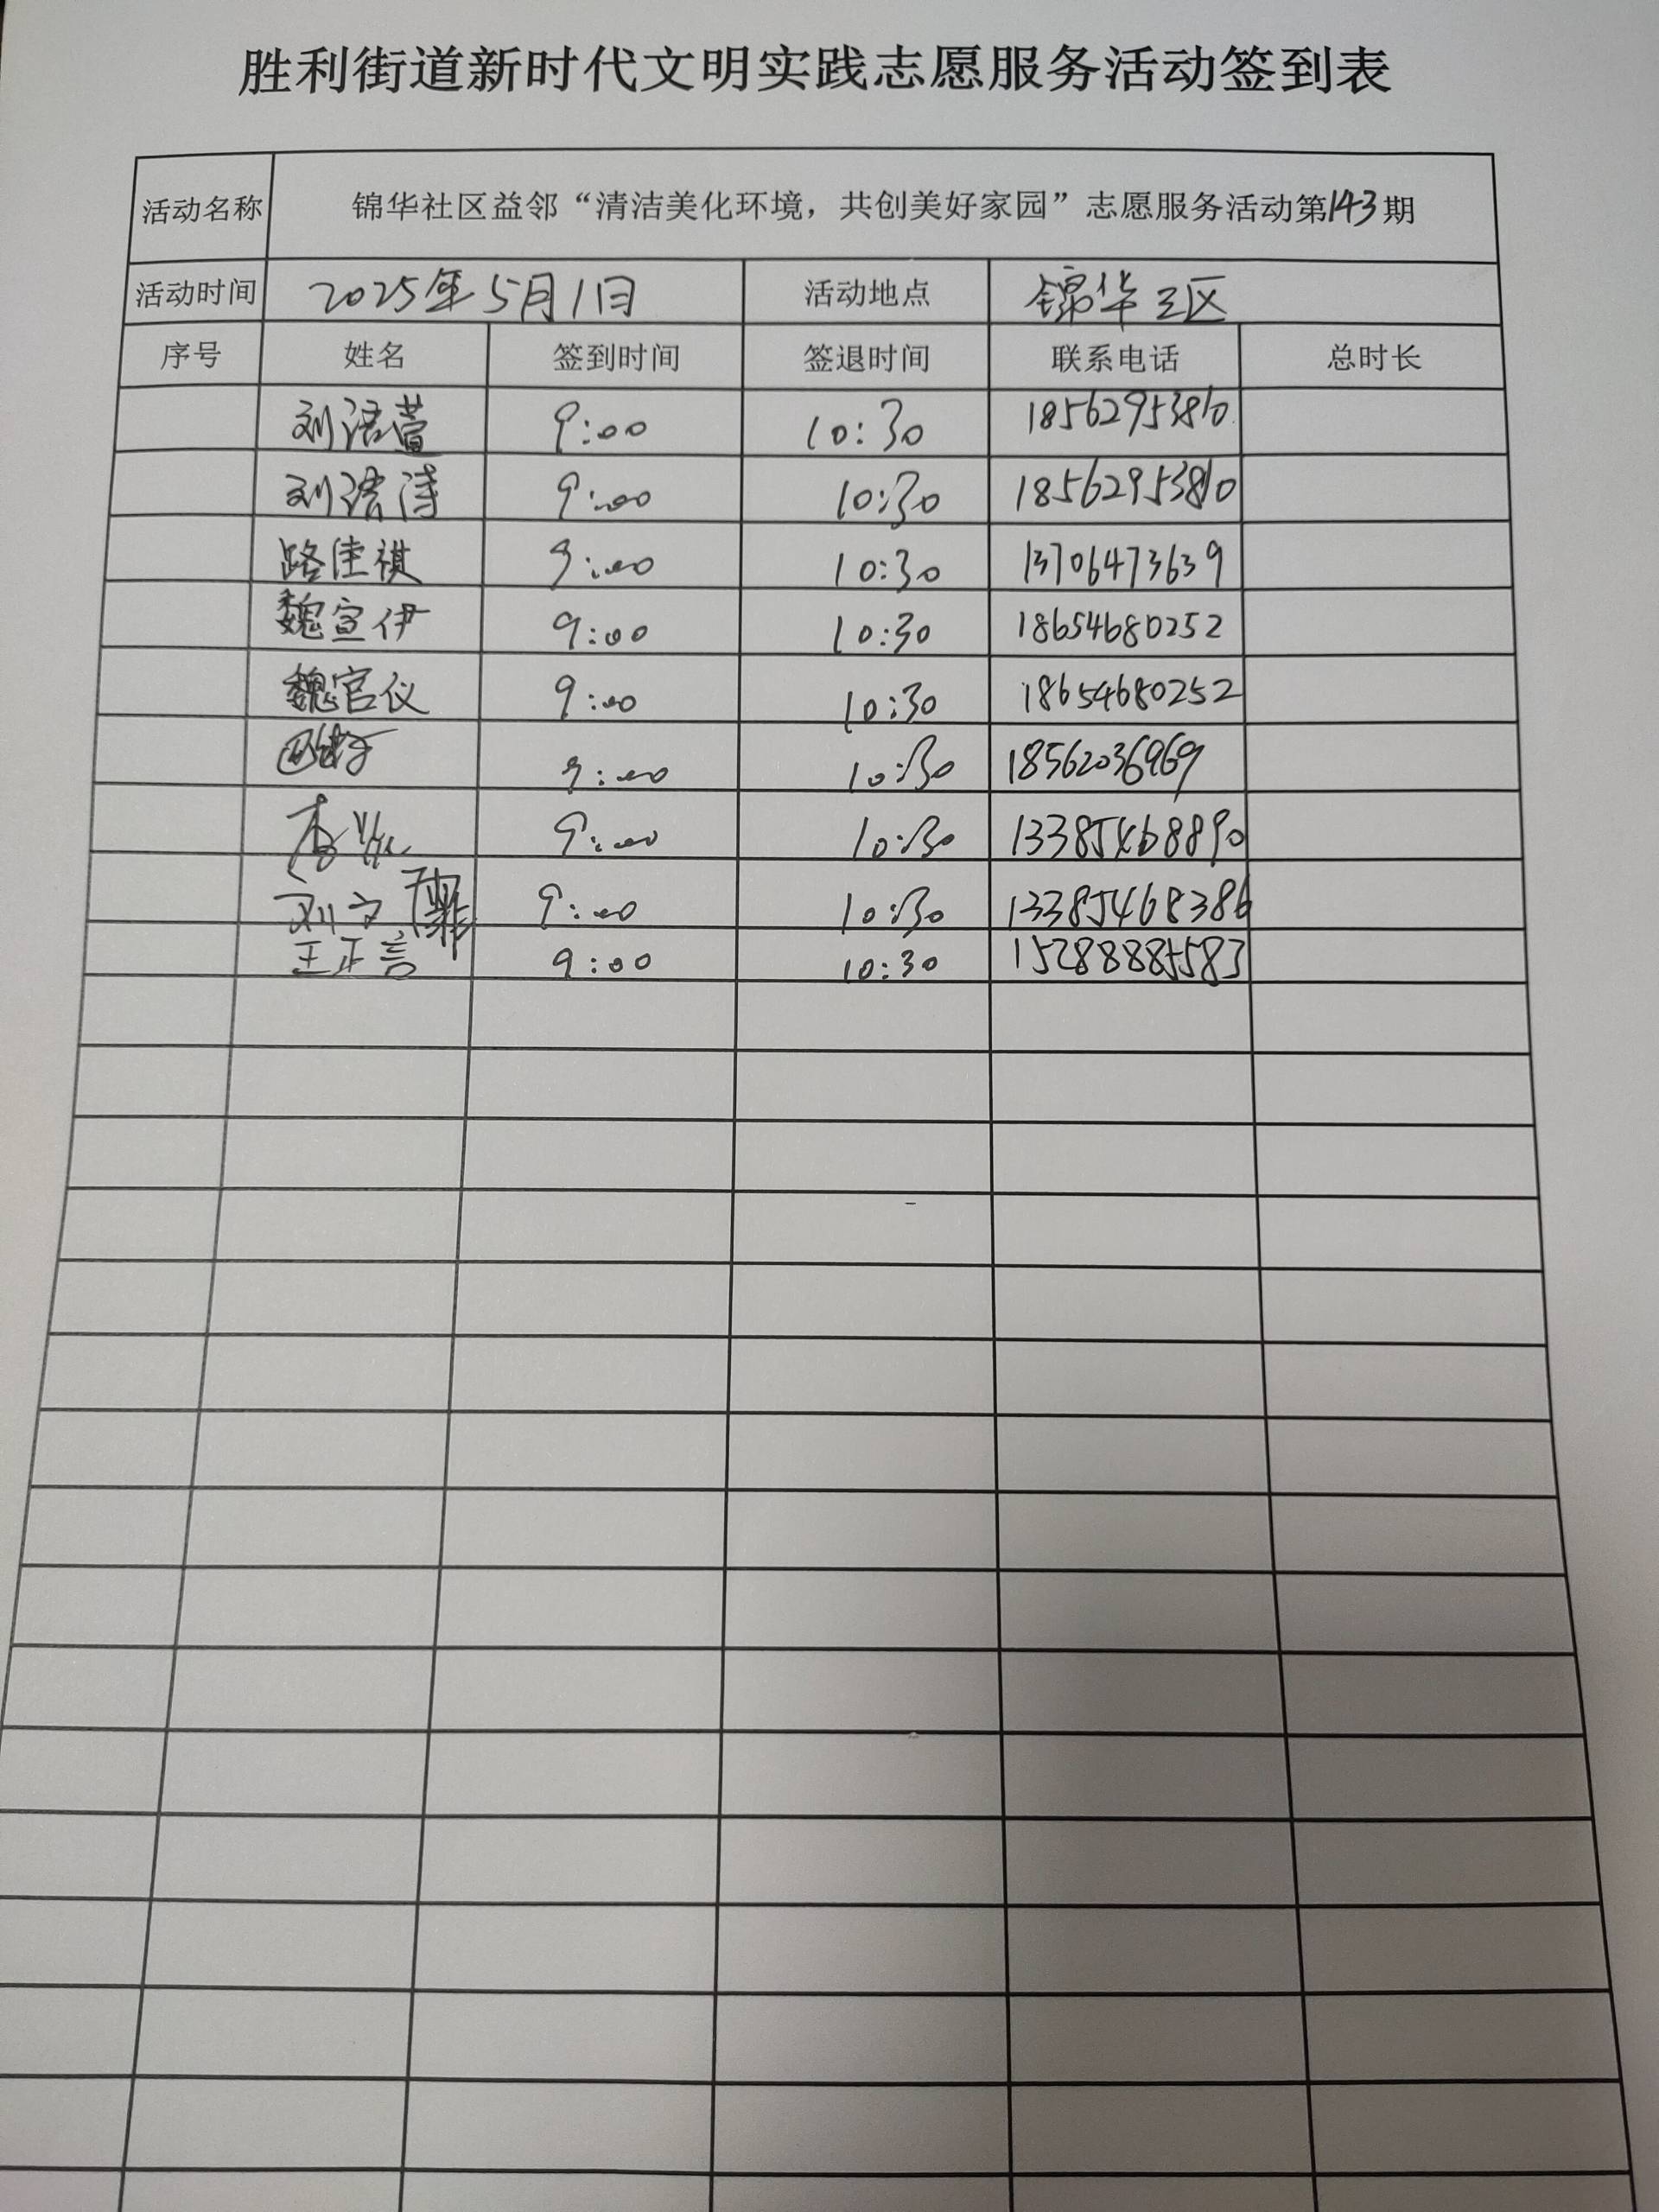 胜利街道新时代文明实践志愿服务活动签到表
活动名称 锦华社区益邻“清洁美化环境，共创美好家园”志愿服务活动第143期
活动时间 2025年5月1日 活动地点 锦华三区
序号 姓名 签到时间 签退时间 联系电话 总时长
刘语萱 9:00 10:30 18562953810
刘语涛 9:00 10:30 18562953810
路佳祺 9:00 10:30 13706473639
魏宣伊 9:00 10:30 18654680252
魏官仪 9:00 10:30 18654680252
9:00 10:30 18562036969
李 9:00 10:30 13385468890
刘文 9:00 10:30 13385468386
王正言 9:00 10:30 15288885583